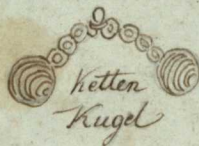 Ketten
Kugel